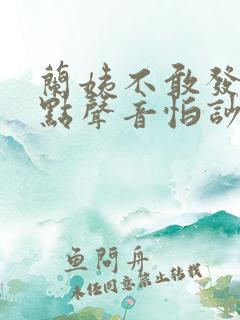 蘭姨不敢發
點聲音怕訬
鱼問舟
未经同意禁止转载